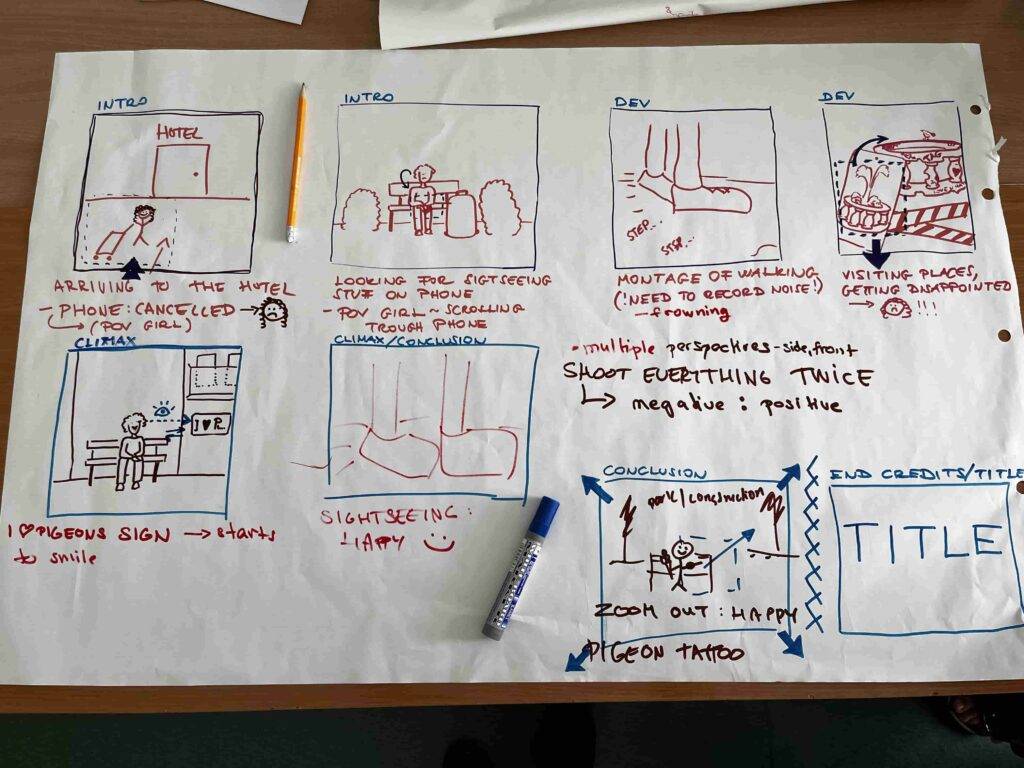 INTRO
HOTEL
ARRIVING TO THE HOTEL
- PHONE: CANCELLED →
↳ (POV GIRL)
INTRO
LOOKING FOR SIGTSEEING
STUF ON PHONE
- POV GIRL ~ SCROLLING
TROUGH PHONE
DEV
STEP...
STEP...
MONTAGE OF WALKING
(!NEED TO RECORD NOISE!)
- frowning
DEV
VISITING PLACES,
GETTING DISAPPOINTED
→ !!!
CLIMAX
I ♥ P...
I ♥ PIGEONS SIGN → starts
to smile
CLIMAX/CONCLUSION
SIGHTSEEING:
HAPPY
- multiple perspectives - side, front
SHOOT EVERYTHING TWICE
↳ negative : positive
CONCLUSION
park/construction
ZOOM OUT: HAPPY
PIGEON TATTOO
END CREDITS/TITLE
TITLE